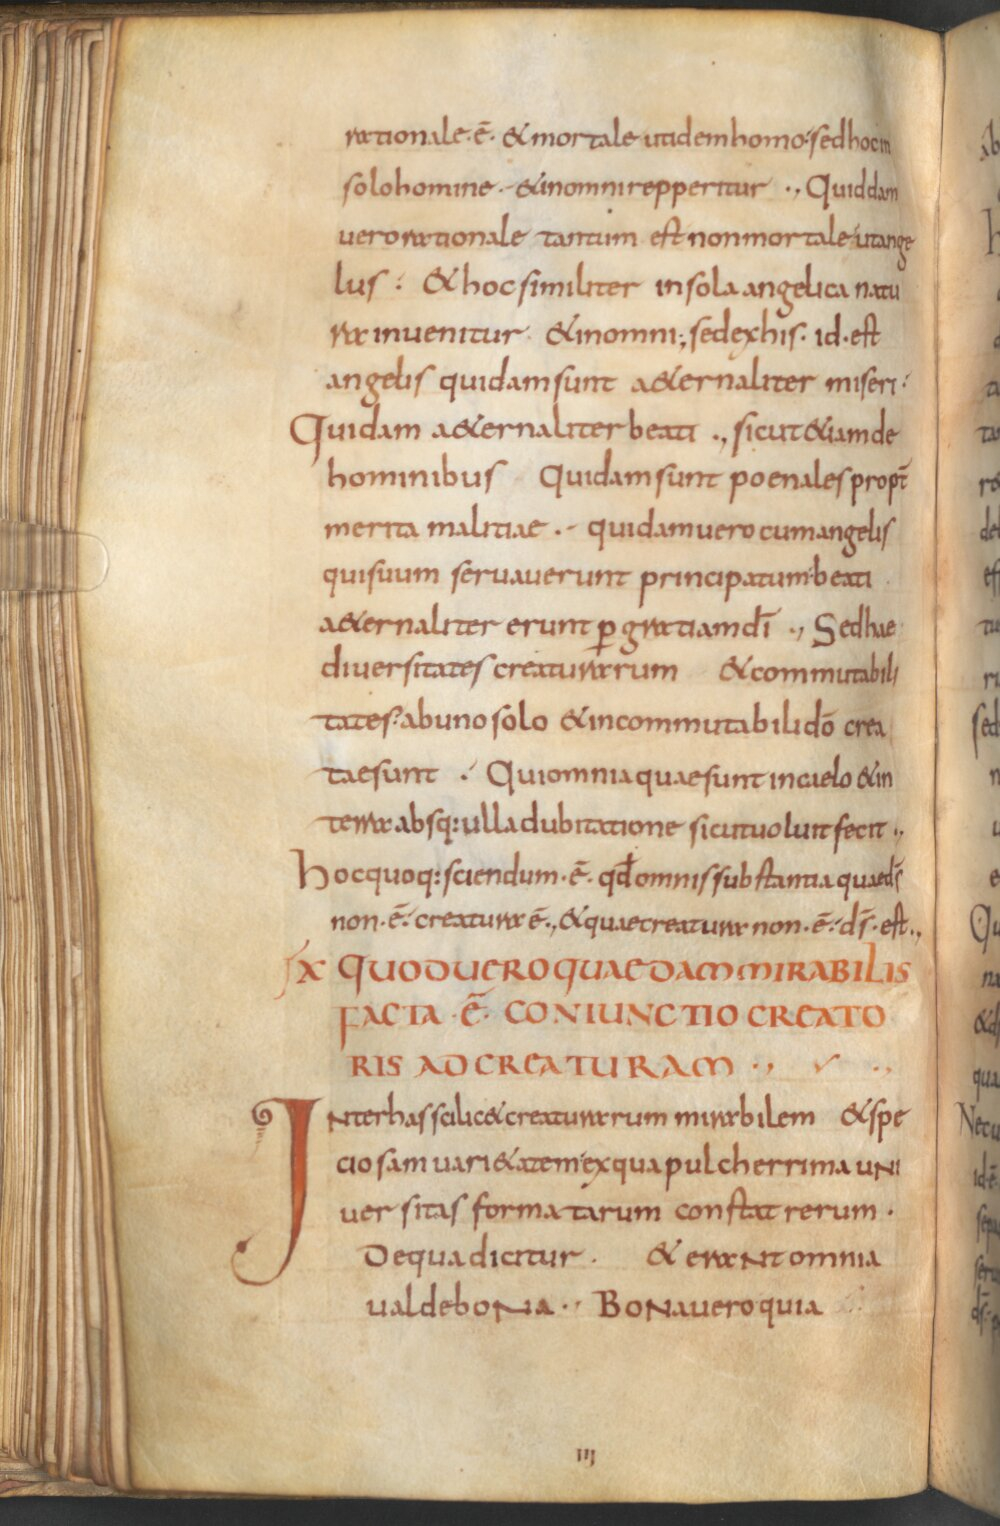 rationale·ē· & mortale ut idem homo· sed hoc in
solo homine ·- & in omni repperitur ·, Quiddam
vero rationale tantum est non mortale· ut ange
lus : & hoc similiter in sola angelica natu
ra invenitur · & in omni ; sed ex his · id · est
angelis quidam sunt a&ernaliter miseri :
Quidam a&ernaliter beati ·, sicut &iam de
hominibus Quidam sunt poenales propt̄
merita malitiae ·- quidam vero cum angelis
qui suum servaverunt principatum· beati
a&ernaliter erunt ꝑ gratiam dī ·, Sed hae
diversitates creaturarum & commutabili
tates : ab uno solo & incommutabili dō crea
tae sunt : Qui omnia quae sunt in caelo & in
terra absq: ulla dubitatione sicut voluit fecit ·,
hoc quoq: sciendum · ē · qđ omnis substantia quae ds̄
non · ē : creatura ē ·, & quae creatura non · ē : ds̄ · est ·,
IX QUOD VERO QUAEDAM MIRABILIS
FACTA · Ē · CONIUNCTIO CREATO
RIS AD CREATURAM ·,
Inter has scilic& creaturarum mirabilem & spe
ciosam vari&atem· ex qua pulcherrima uni
versitas formatarum constat rerum ·
De qua dicitur · & erant omnia
valde bona ·· Bona vero quia
iij